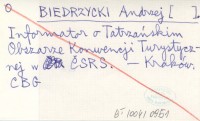 BIEDRZYCKI Andrzej [ ].
Informator o Tatrzańskim
Obszarze Konwencji Turystycz-
nej w ČSRS. — Kraków.
CBG